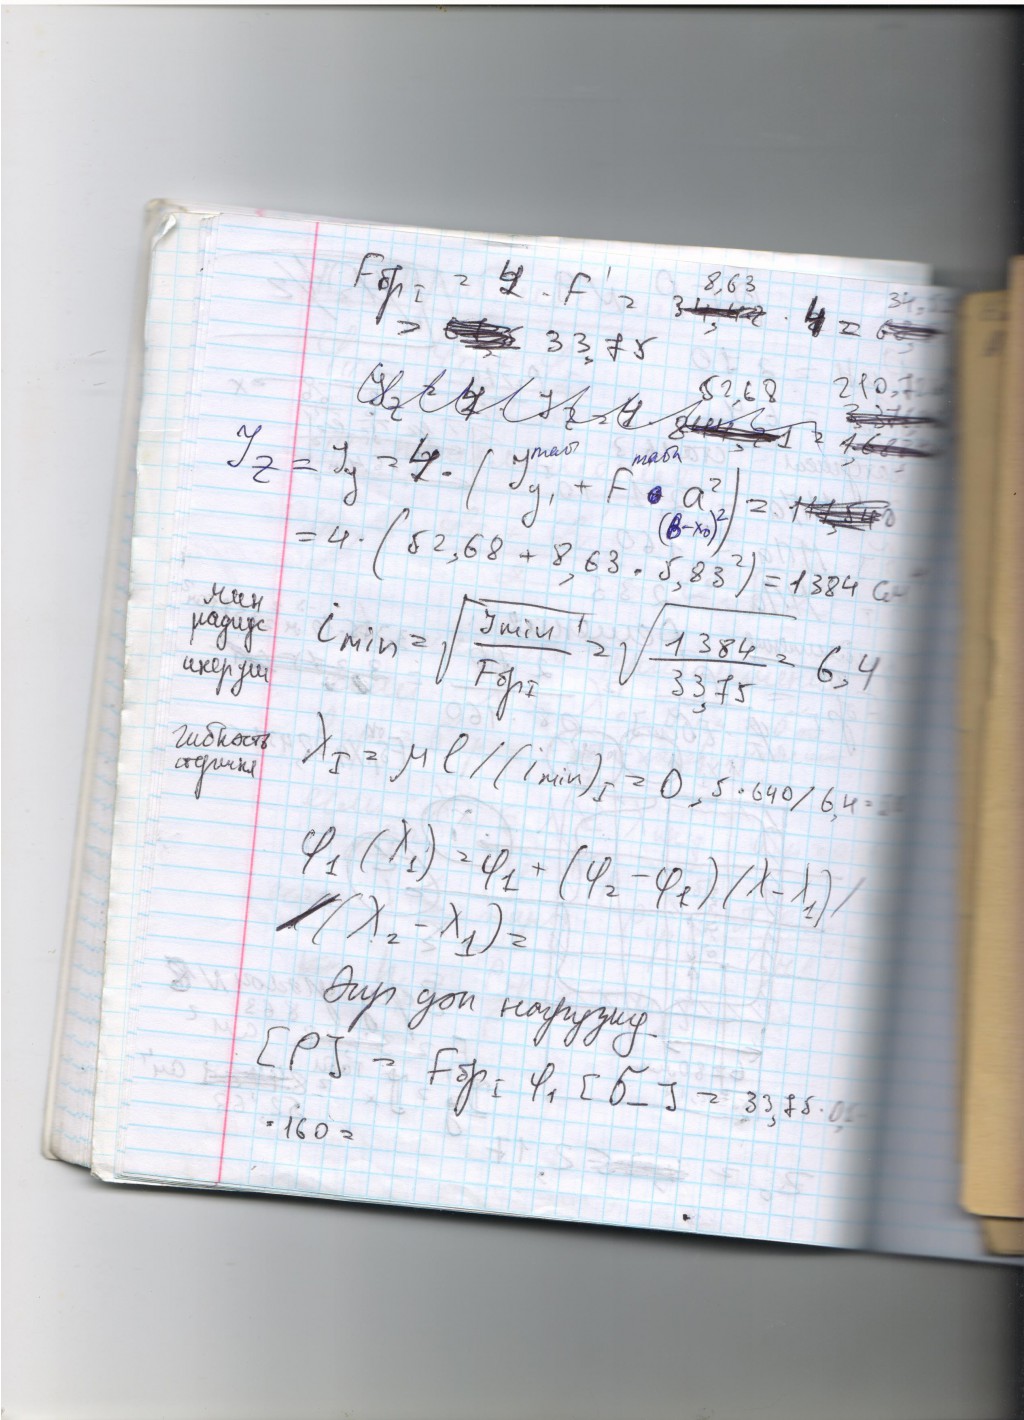 Fбр_I = 4 · F' = 8,63 · 4 =
= 33,75
52,68 210,7
J_z = J_y = 4 · (J_y₁^табл + F^табл · a²) =
(в-x₀)²
= 4 · (52,68 + 8,63 · 5,83²) = 1384 см
мин
радиус
инерции
i_min = √(J_min / Fбр_I) = √(1384 / 33,75) = 6,4
гибкость
стержня
λ_I = μ l / (i_min)_I = 0,5 · 640 / 6,4 =
φ₁ (λ₁) = φ₁ + (φ₂ - φ₁) (λ - λ₁) /
/ (λ₂ - λ₁) =
доп нагрузку
[P] = Fбр_I φ₁ [б_] = 33,75 ·
· 160 =